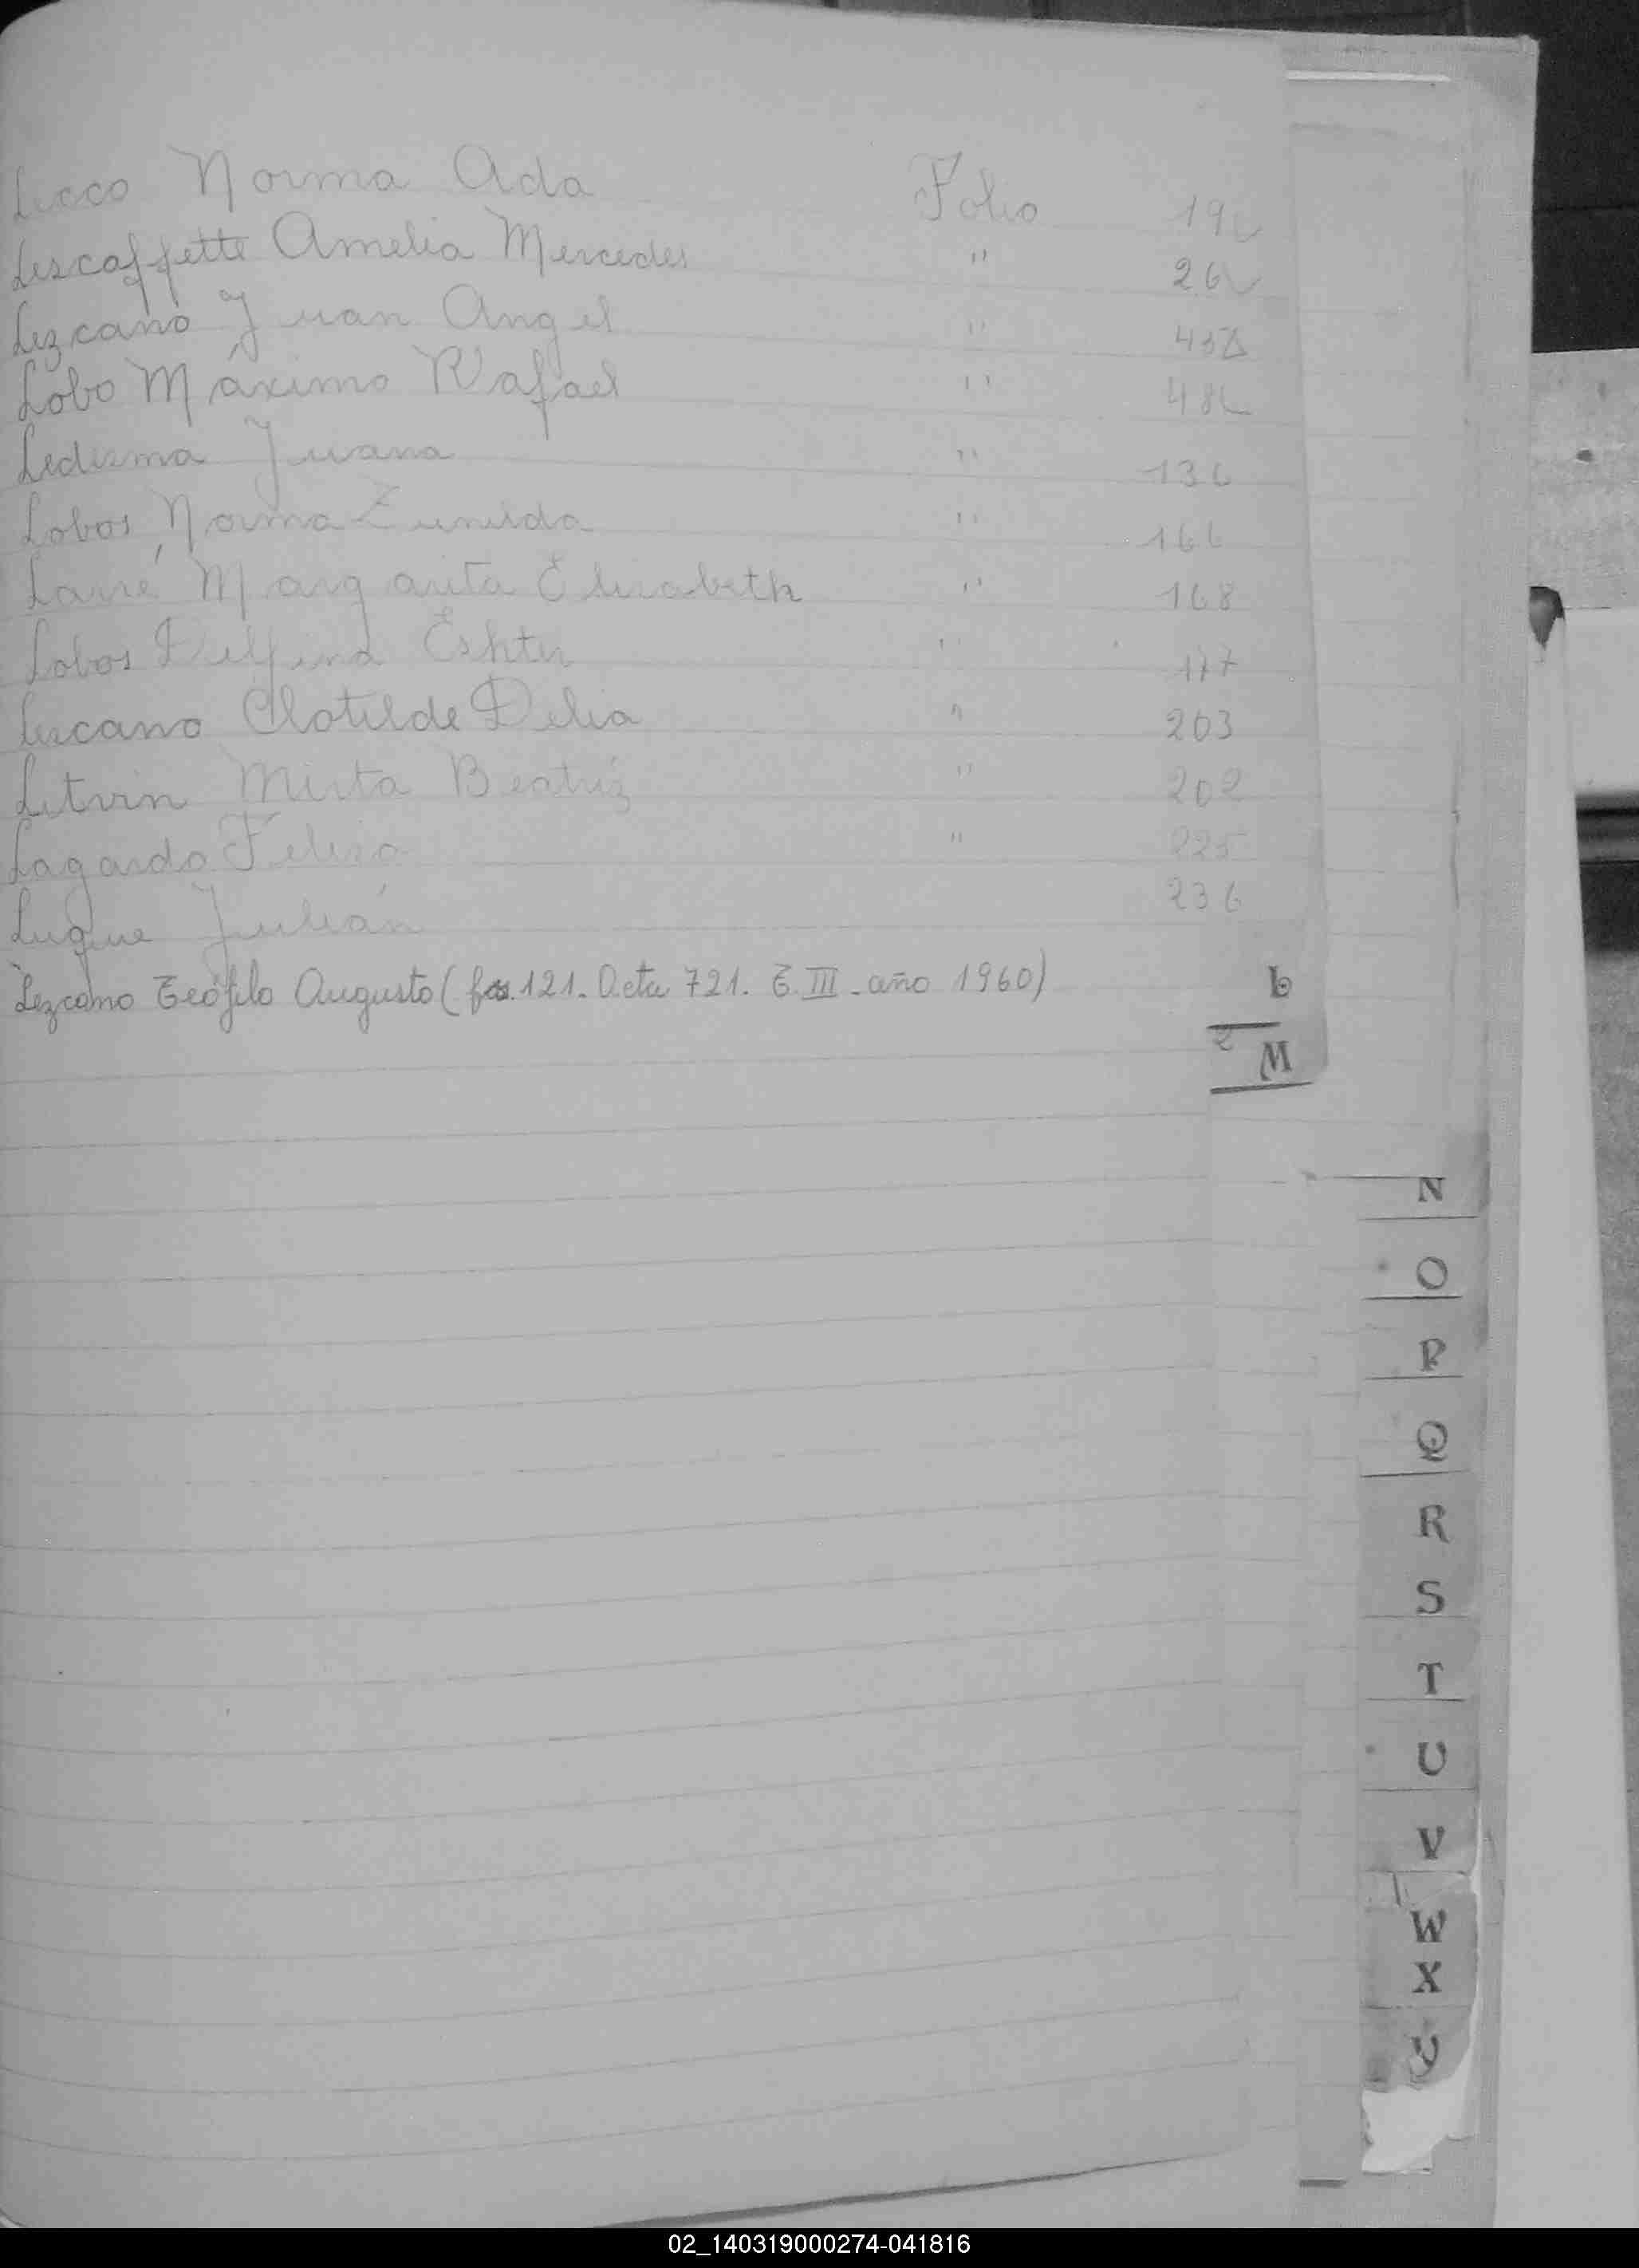 Licco Norma Ada Folio 19
Lescaffette Amelia Mercedes " 26
Lezcano Juan Angel "
Lobo Máximo Rafael " 48
Ledesma Juana " 136
Lobos Norma Zunilda " 166
Larré Margarita Elisabeth " 168
Lobos Delfina Eshter " 177
Lezcano Clotilde Delia " 203
Litvin Mirta Beatriz " 202
Lagardo Felisa " 225
Luque Julián 236
Lezcano Teófilo Augusto ( 121. Acta 721. T. III - año 1960)
L
M
N
O
P
Q
R
S
T
U
V
W
X
Y
02_140319000274-041816